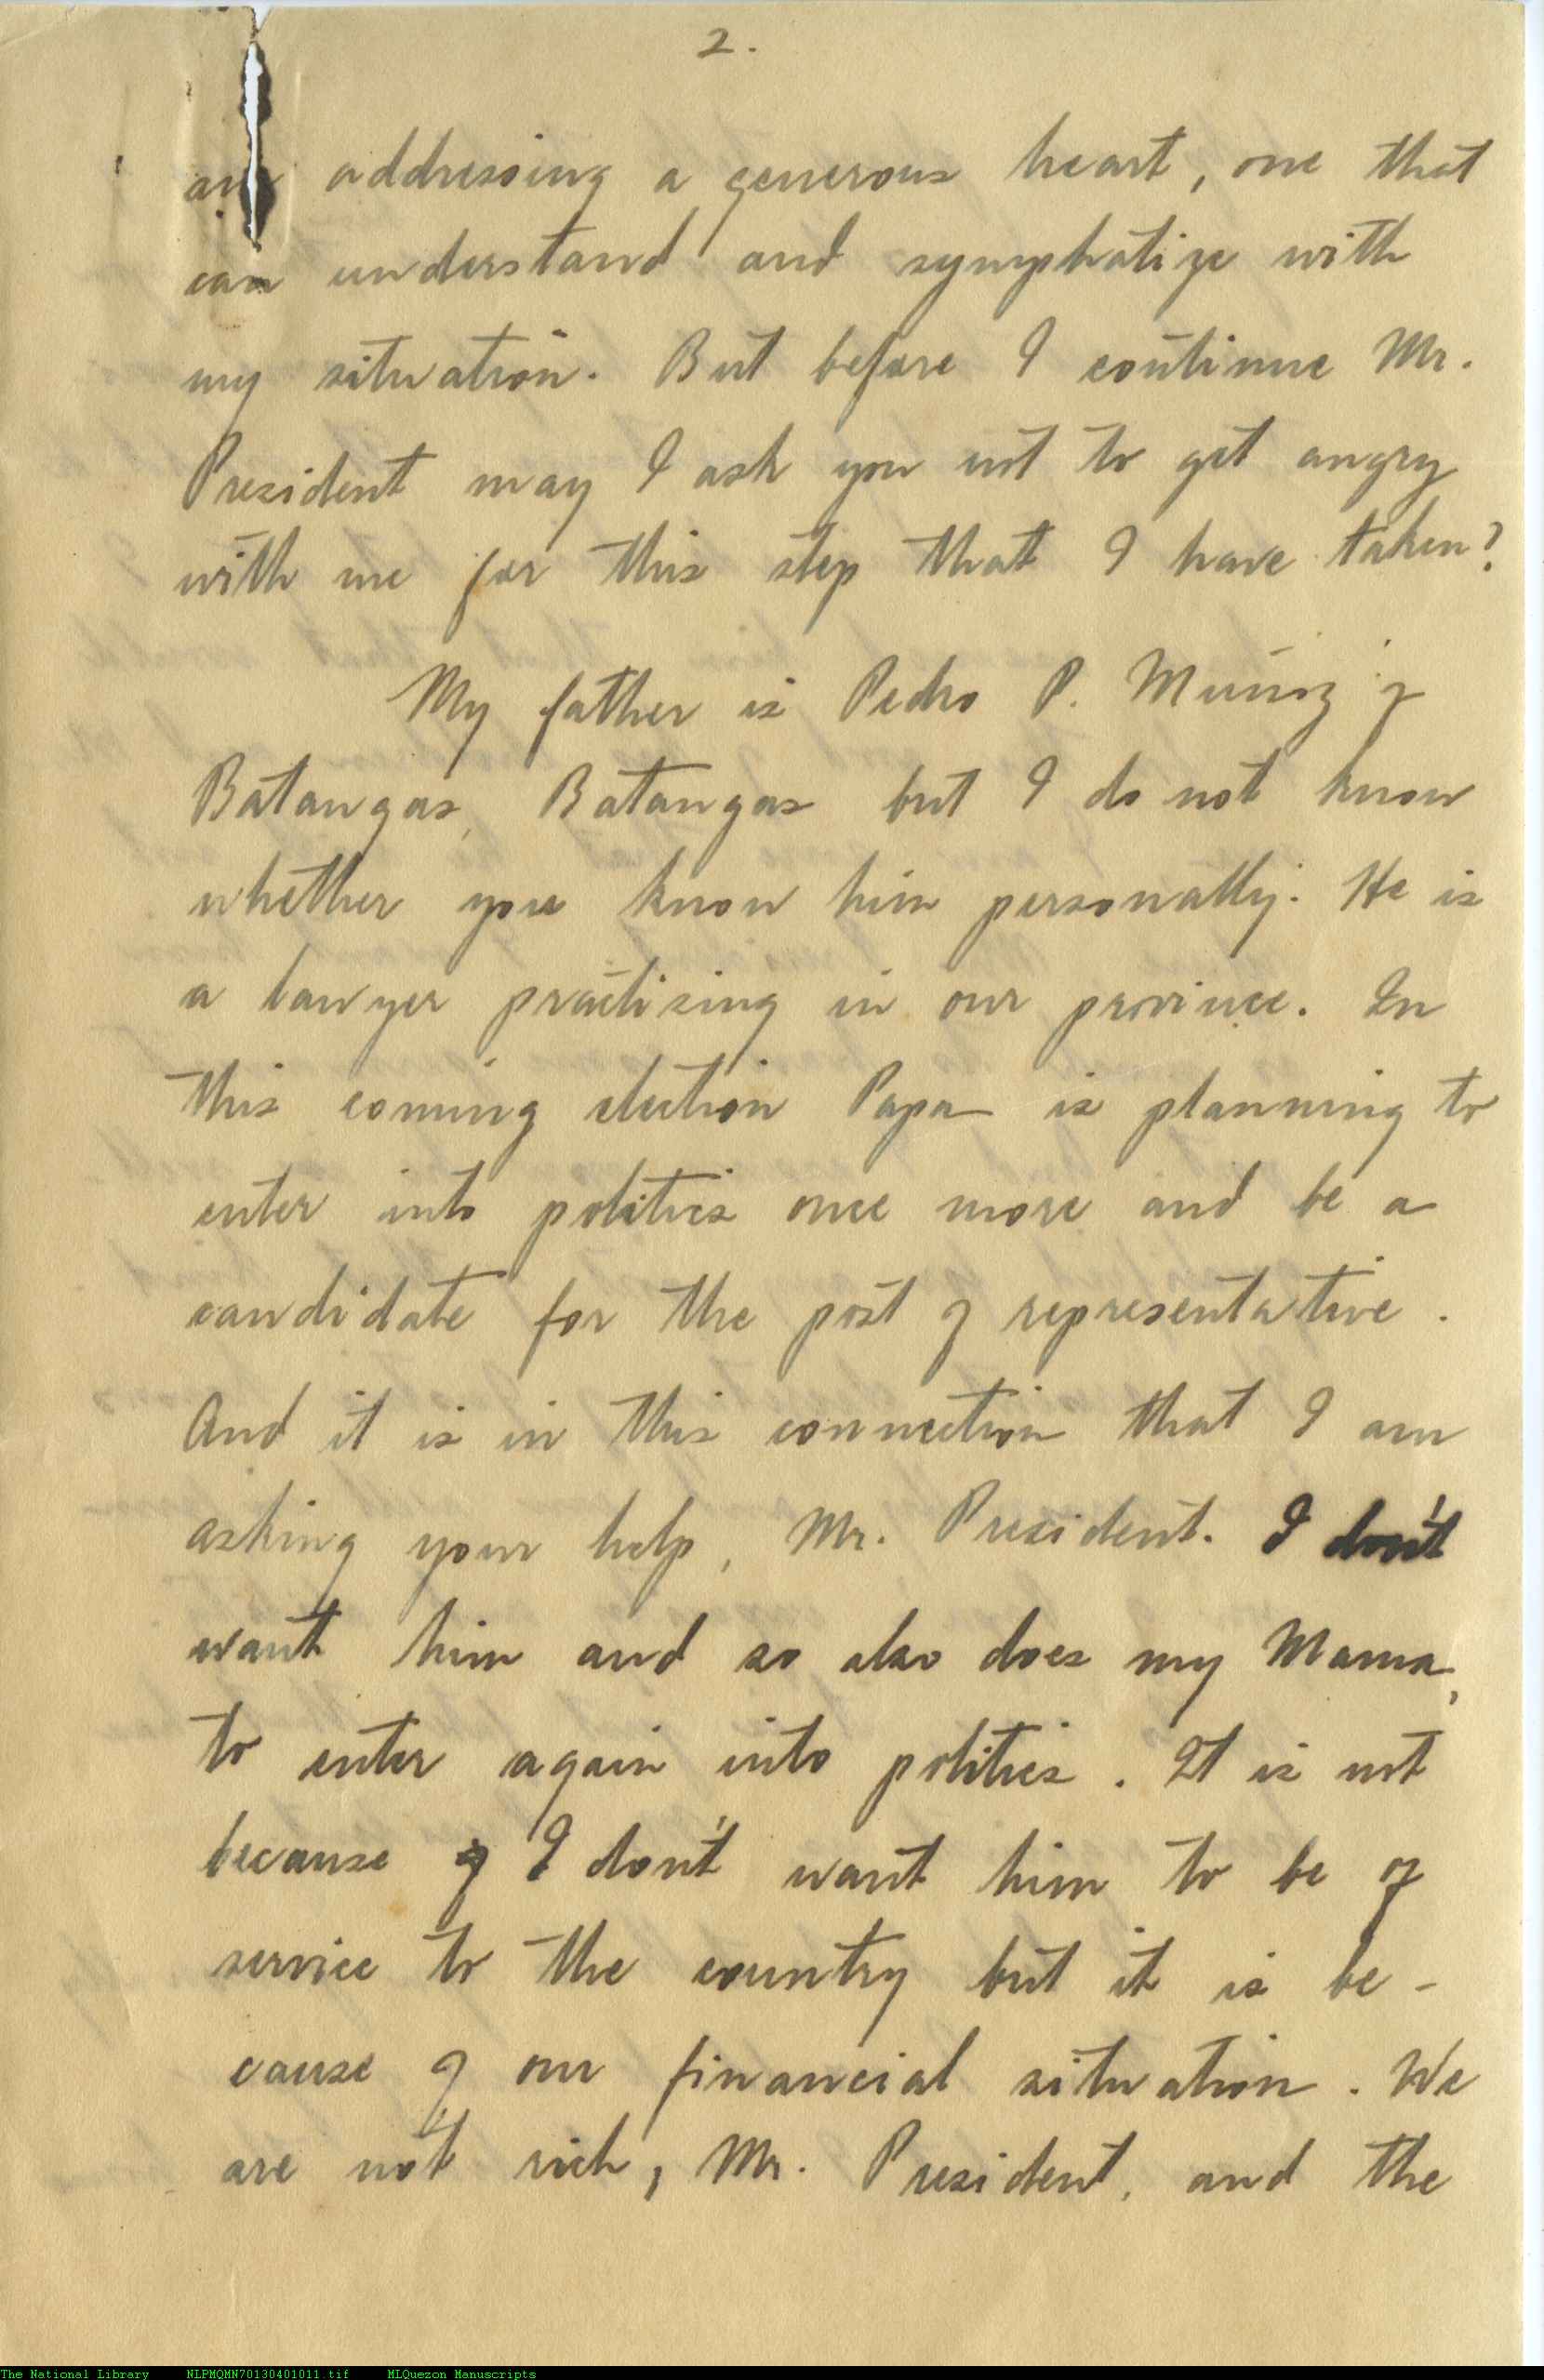 2.
am addressing a generous heart, one that
can understand and symphatize with
my situation. But before I continue Mr.
President may I ask you not to get angry
with me for this step that I have taken?
My father is Pedro P. Muñoz of
Batangas, Batangas but I do not know
whether you know him personally. He is
a lawyer practising in our province. In
this coming election Papa is planning to
enter into politics once more and be a
candidate for the post of representative.
And it is in this connection that I am
asking your help, Mr. President. I don't
want him and so also does my Mama,
to enter again into politics. It is not
because of I don't want him to be of
service to the country but it is be-
cause of our financial situation. We
are not rich, Mr. President, and the
The National Library NLPMQMN70130401011.tif MLQuezon Manuscripts